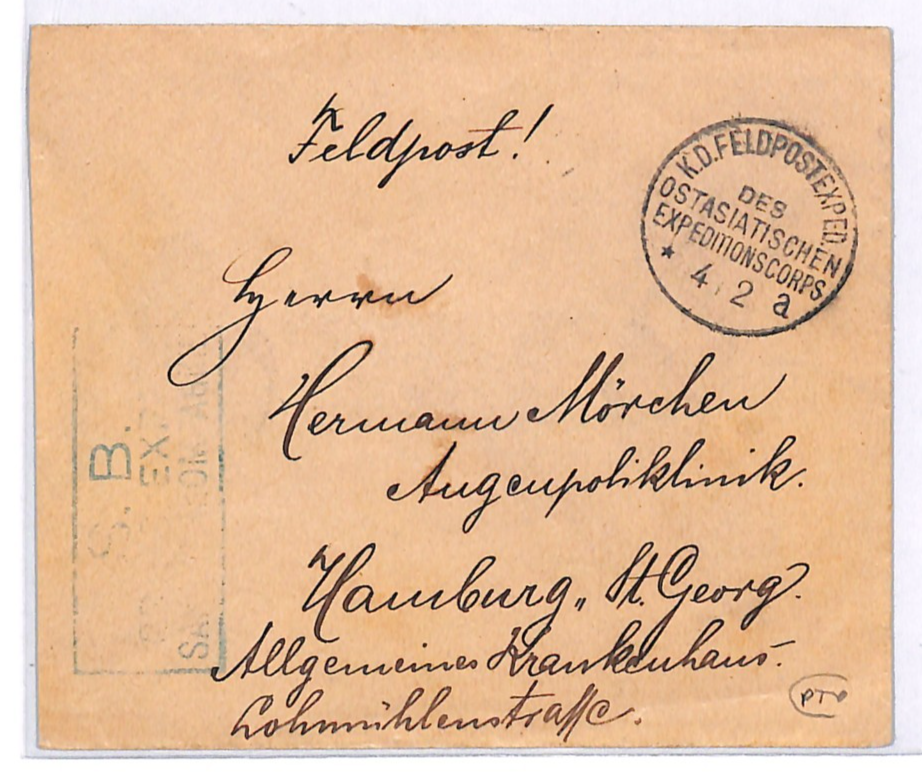 Feldpost!
K.D.FELDPOSTEXPED.
DES
OSTASIATISCHEN
EXPEDITIONSCORPS
* 4 2 a
Herrn
Hermann Mörchen
Augenpoliklinik.
Hamburg„ St. Georg.
Allgemeines Krankenhaus.
Lohmühlenstraſse.
S. B.
EX